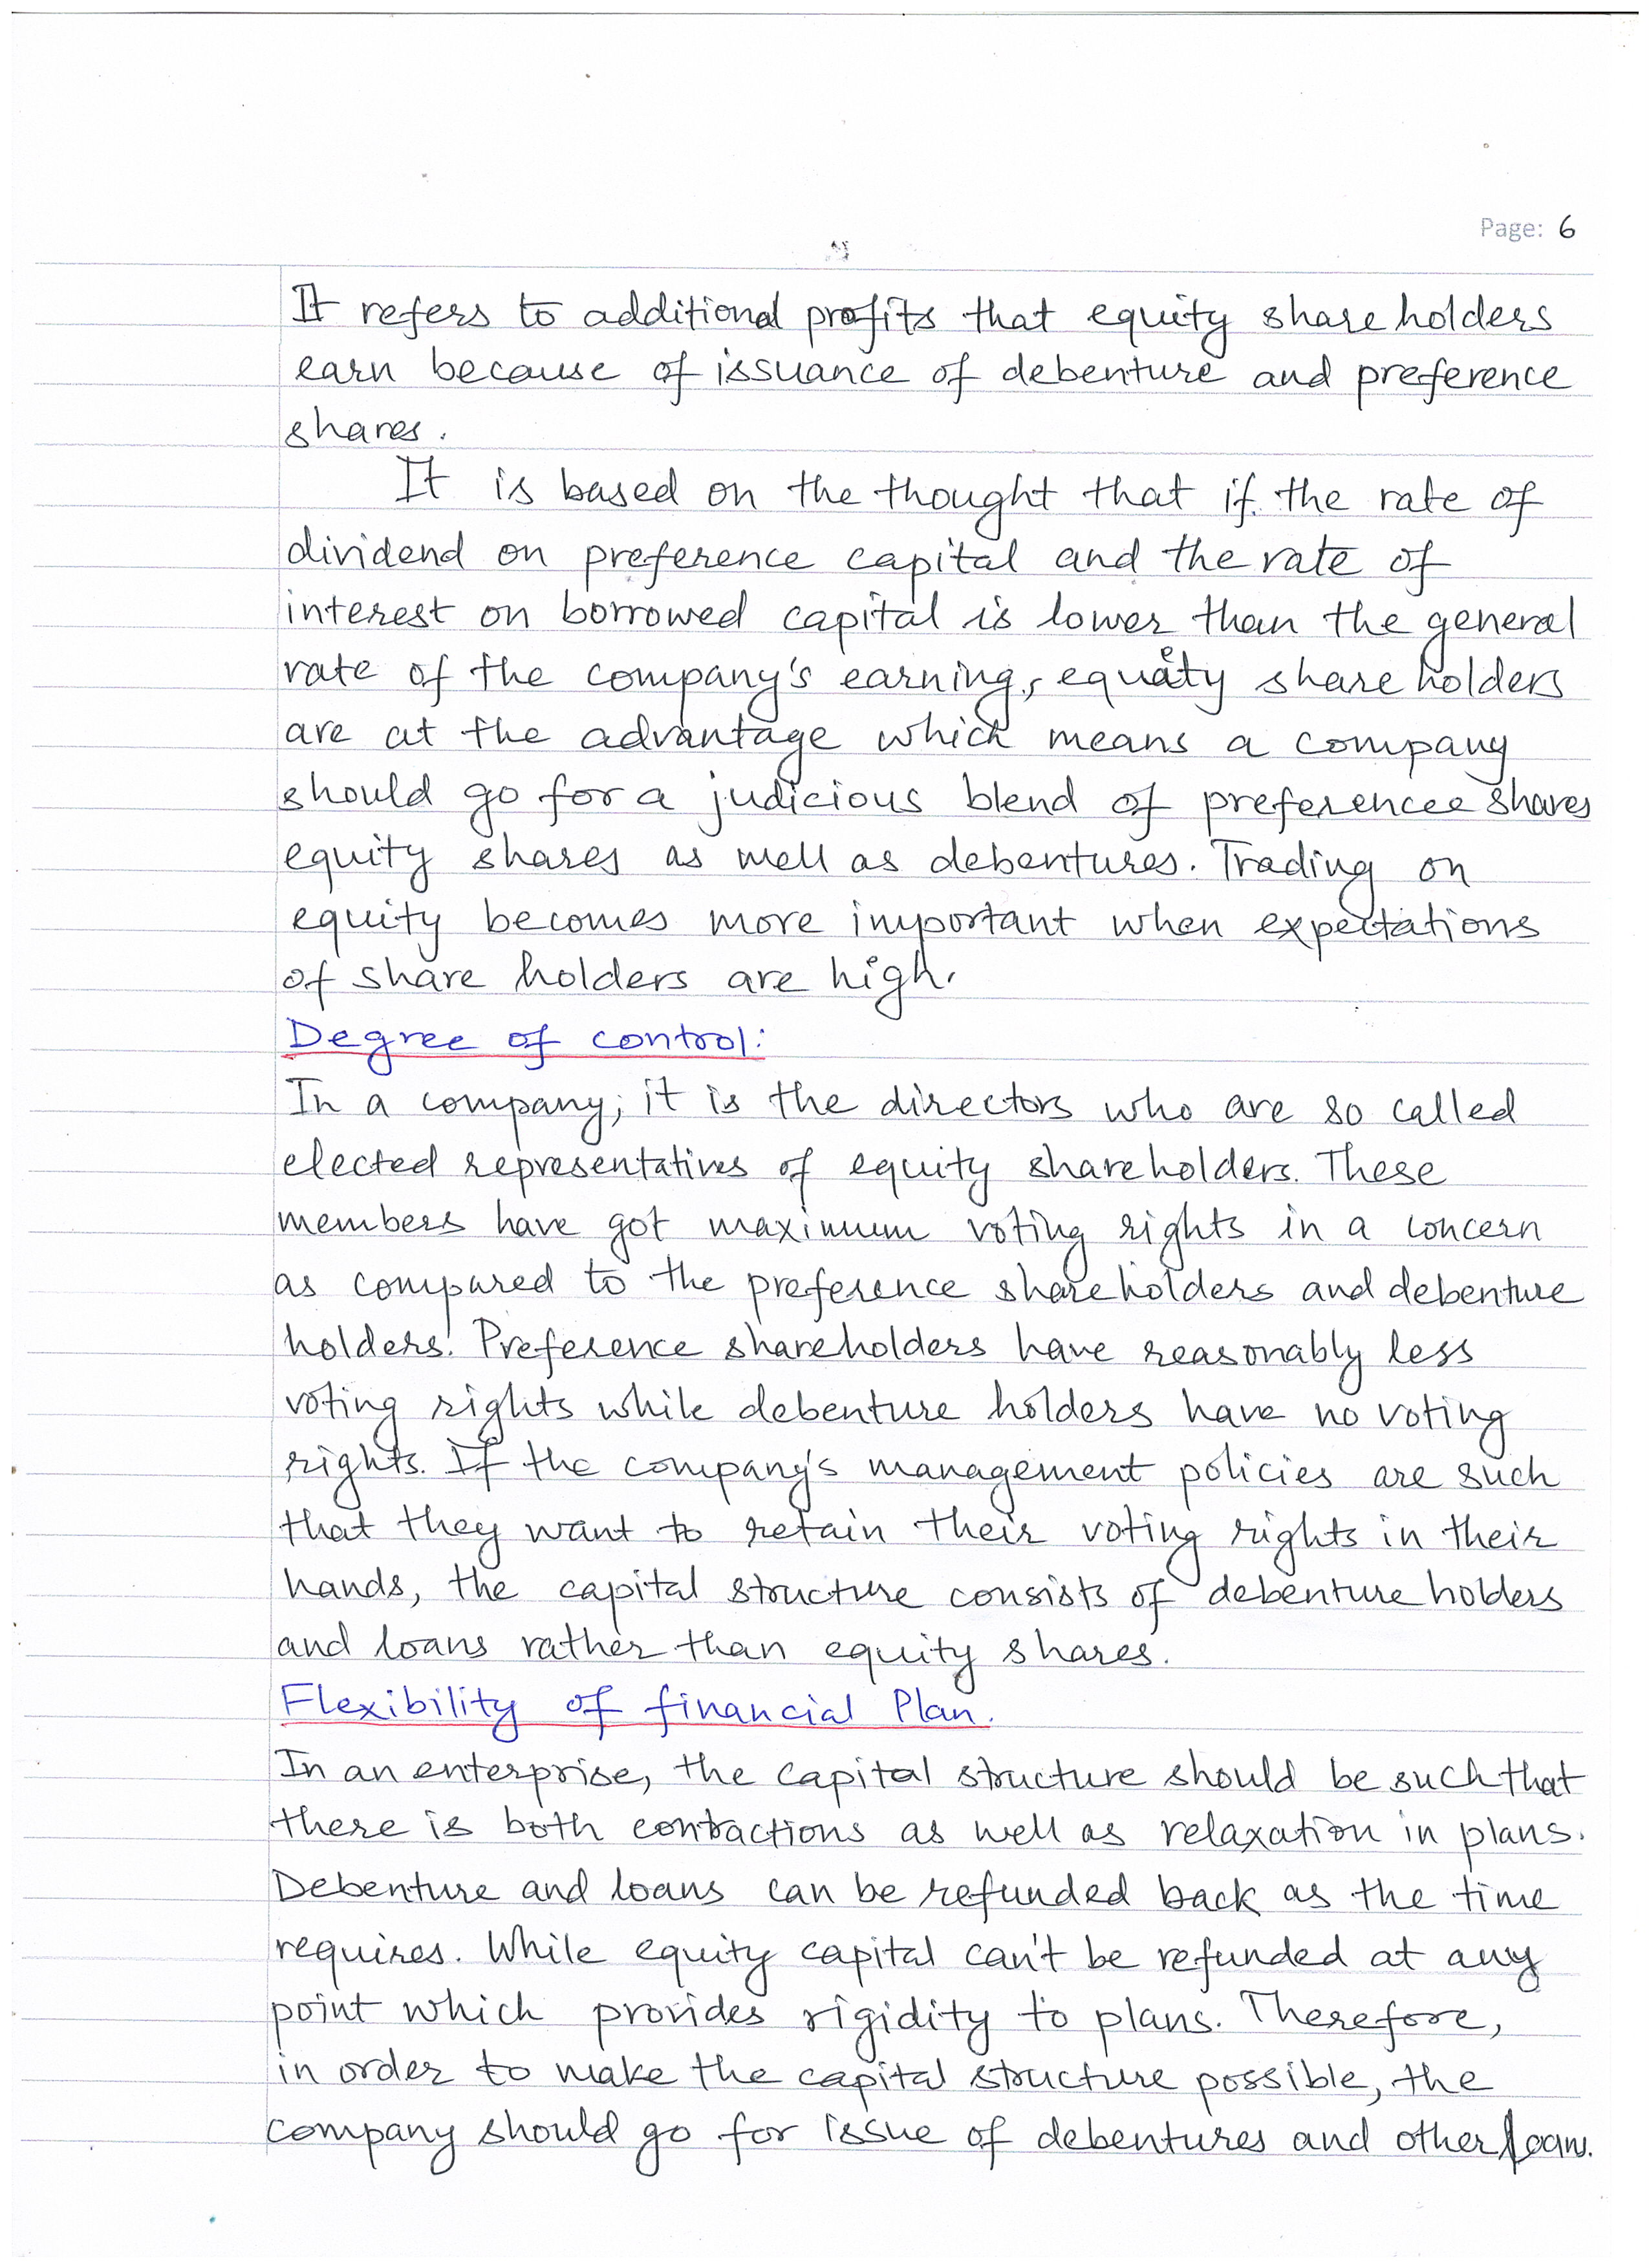 Page: 6
It refers to additional profits that equity share holders
earn because of issuance of debenture and preference
shares.
It is based on the thought that if the rate of
dividend on preference capital and the rate of
interest on borrowed capital is lower than the general
rate of the company's earning, equity share holders
are at the advantage which means a company
should go for a judicious blend of preferencee shares
equity shares as well as debentures. Trading on
equity becomes more important when expectations
of share holders are high.
Degree of control:
In a company, it is the directors who are so called
elected representatives of equity shareholders. These
members have got maximum voting rights in a concern
as compared to the preference shareholders and debenture
holders. Preference shareholders have reasonably less
voting rights while debenture holders have no voting
rights. If the company's management policies are such
that they want to retain their voting rights in their
hands, the capital structure consists of debenture holders
and loans rather than equity shares.
Flexibility of financial Plan.
In an enterprise, the capital structure should be such that
there is both contractions as well as relaxation in plans.
Debenture and loans can be refunded back as the time
requires. While equity capital can't be refunded at any
point which provides rigidity to plans. Therefore,
in order to make the capital structure possible, the
company should go for issue of debentures and other loans.